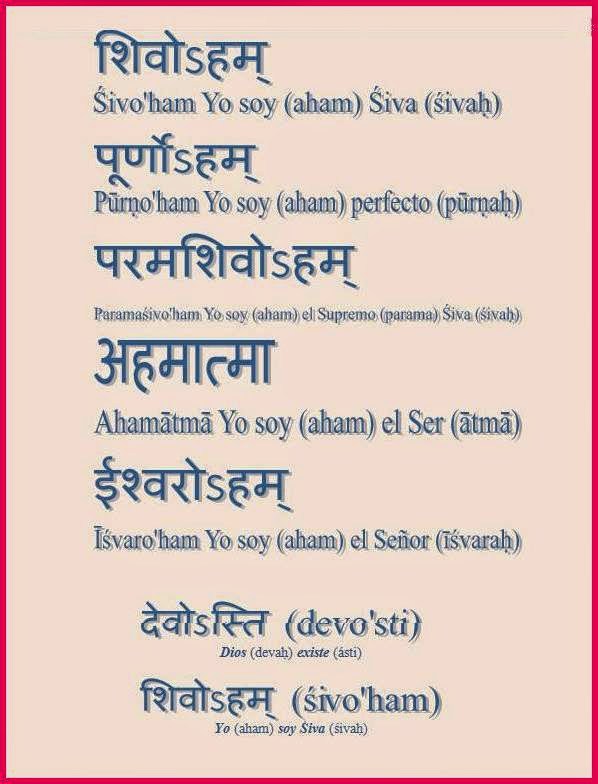 शिवोऽहम्
Śivo'ham Yo soy (aham) Śiva (śivaḥ)
पूर्णोऽहम्
Pūrṇo'ham Yo soy (aham) perfecto (pūrṇaḥ)
परमशिवोऽहम्
Paramaśivo'ham Yo soy (aham) el Supremo (parama) Śiva (śivaḥ)
अहमात्मा
Ahamātmā Yo soy (aham) el Ser (ātmā)
ईश्वरोऽहम्
Īśvaro'ham Yo soy (aham) el Señor (īśvaraḥ)
देवोऽस्ति (devo'sti)
Dios (devaḥ) existe (ásti)
शिवोऽहम् (śivo'ham)
Yo (aham) soy Śiva (śivaḥ)